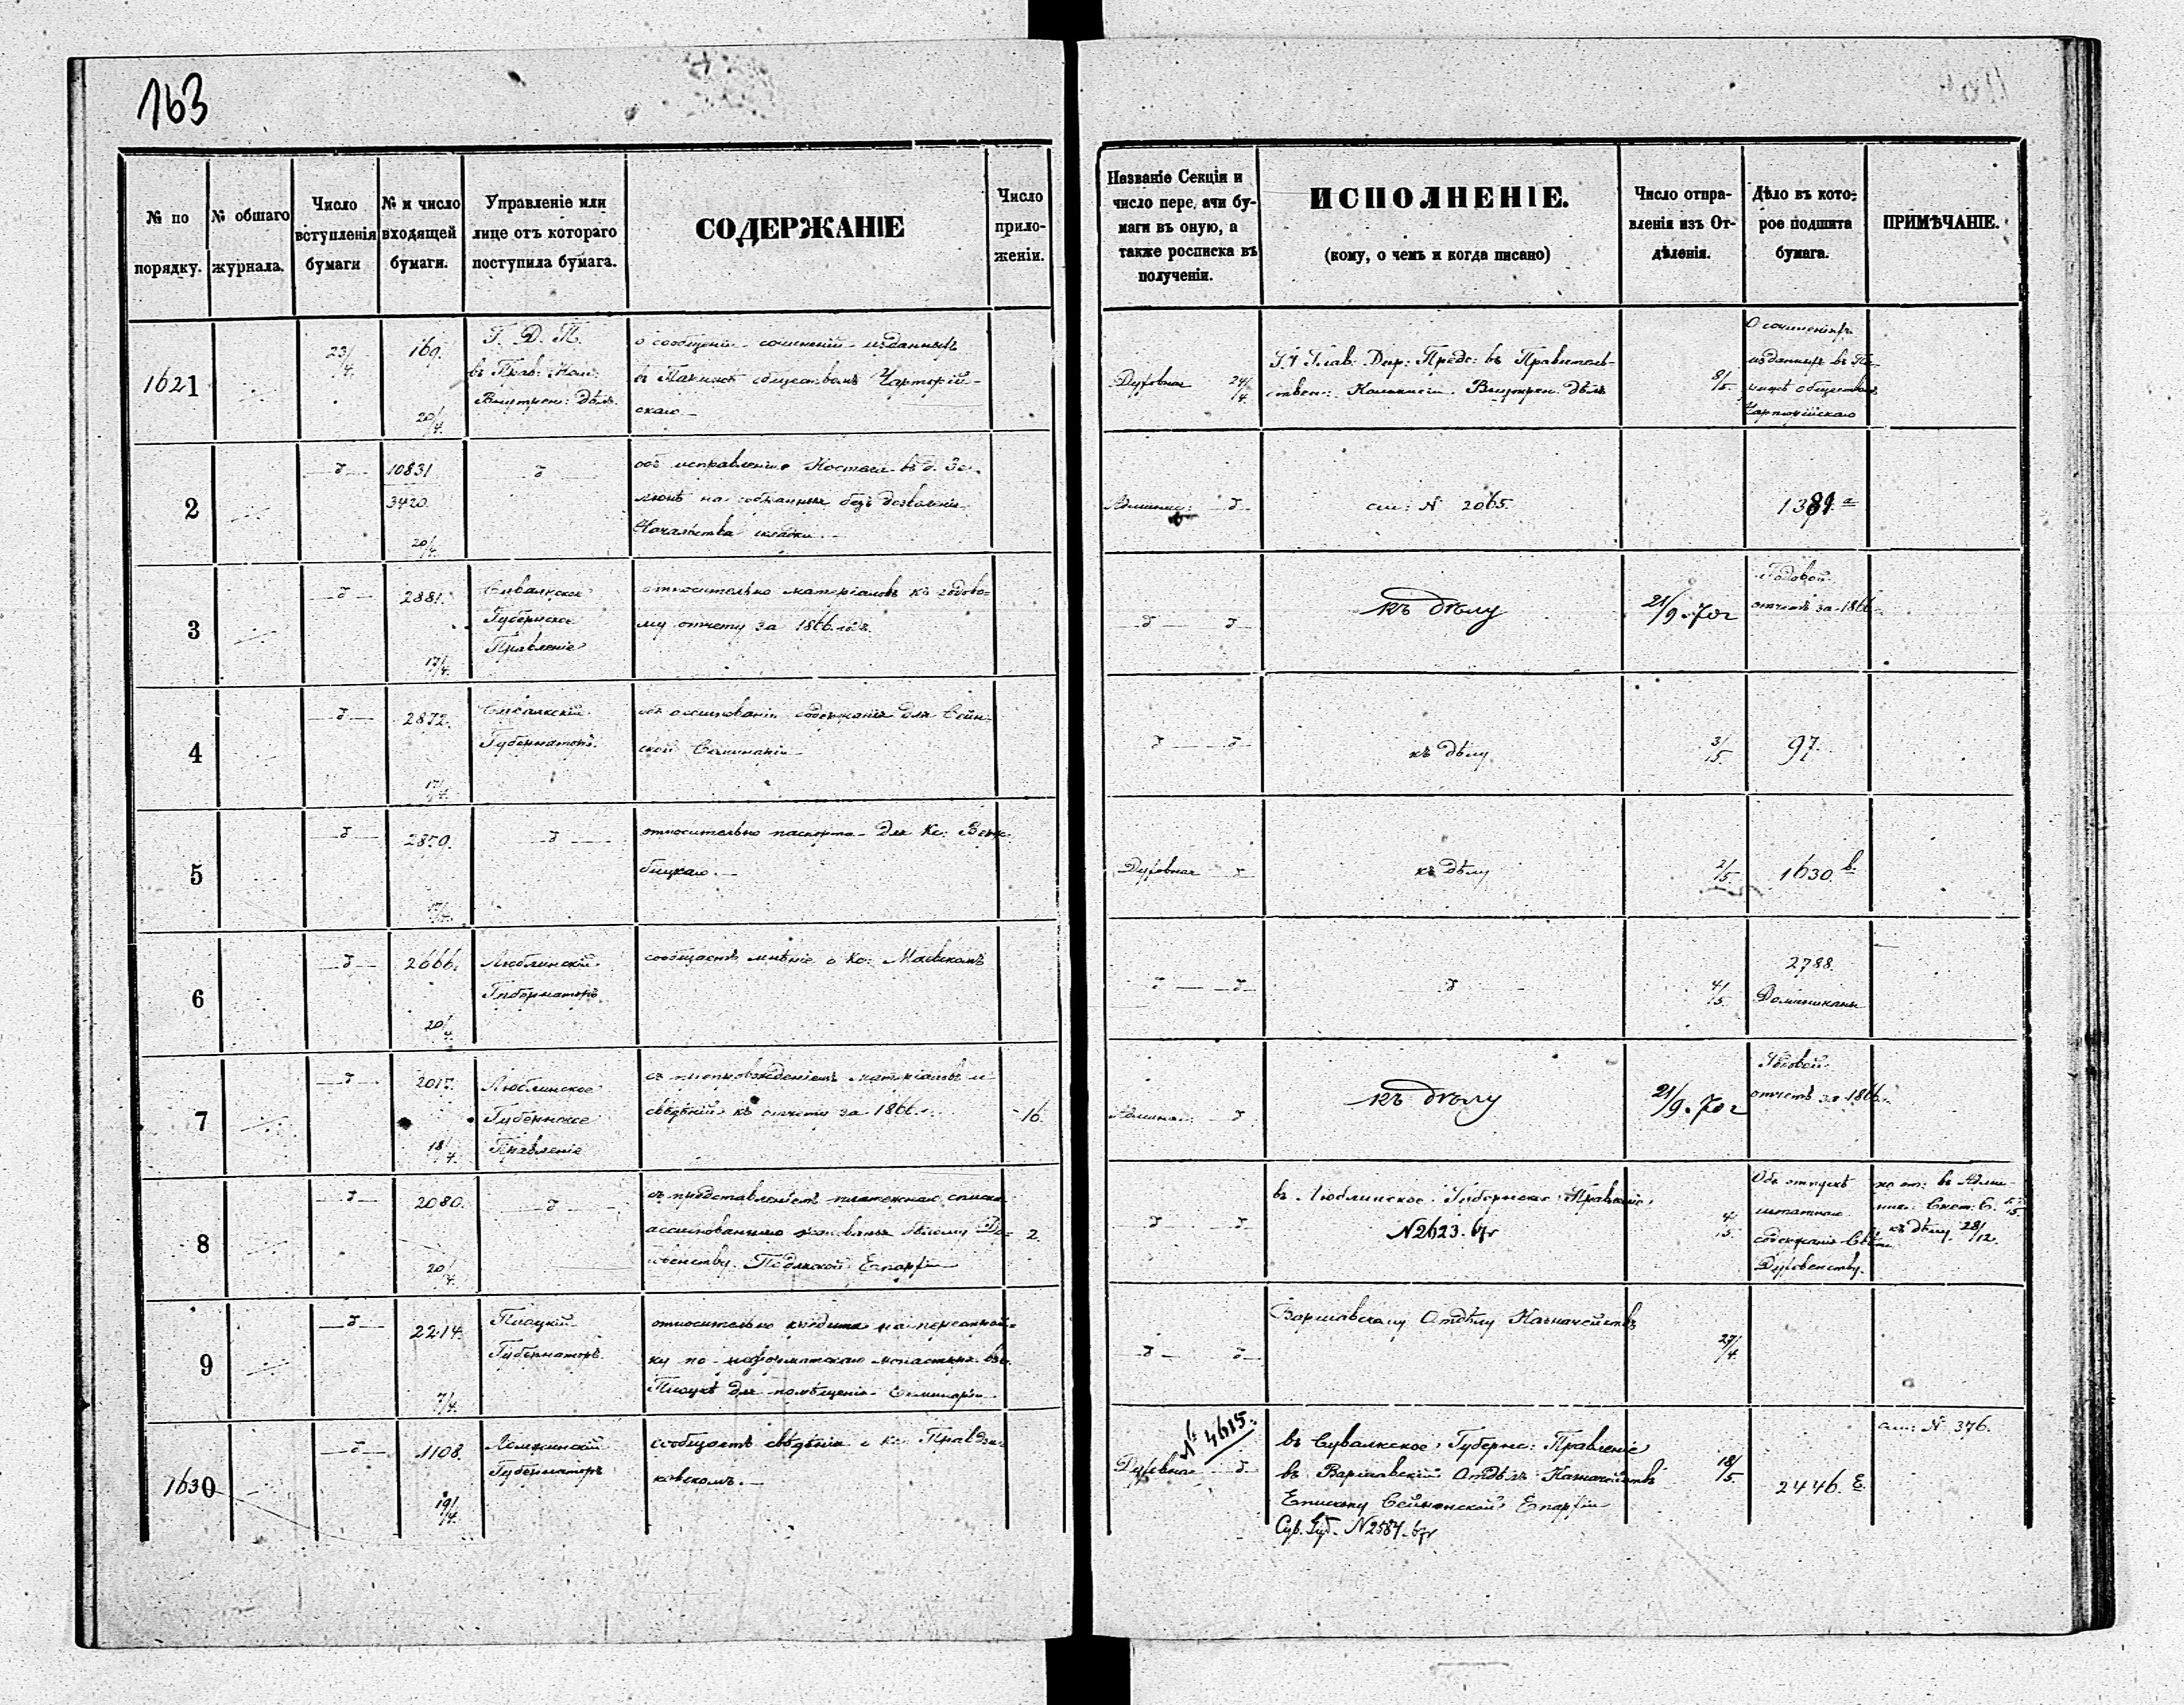 163
№ по порядку.
№ общаго журнала.
Число вступленія бумаги
№ и число входящей бумаги.
Управленіе или лице отъ котораго поступила бумага.
СОДЕРЖАНІЕ
Число приложеніи.
Названіе Секціи и число пере, ачи бумаги въ оную, а также росписка въ полученіи.
ИСПОЛНЕНІЕ.
(кому, о чемъ и когда писано)
Число отправленія изъ Отдѣленія.
Дѣло въ которое подшита бумага.
ПРИМѢЧАНІЕ.
1621
23/4.
169.
20/4.
Г. Д. П.
въ Прав: Ком:
Внутрен: дѣлъ.
о сообщеніи сочиненій изданныхъ
въ Парижѣ обществомъ Чарторій-
скаго
Духовная 24/4.
Г. Глав: Дир: Предс: въ Правительс-
твен: Коммисіи Внутрен: дѣлъ
8/5.
О сочиненіяхъ
изданныхъ въ Па-
рижѣ обществомъ
Чарторійскаго
2
д
10831
3420.
20/4.
д
Костела въ д. Зе-
безъ дозволенія
Начальства
Админис: д
см: N 2065.
1381 а
3
д
2881.
17/4.
Сувалкское
Губернское
Правленіе
относительно матеріаловъ къ годово-
му отчету за 1866 годъ.
д д
къ дѣлу
21/9 70 г
Годовой
отчетъ за 1866
4
д
2872.
17/4.
Сувалкскій
Губернаторъ.
объ ассигнованіи содержанія для Сейн-
ской Семинаріи
д д
къ дѣлу
3/5.
97.
5
д
2850.
17/4.
д
относительно паспорта для Кс: Верж-
бицкаго.
Духовная д
къ дѣлу
2/5.
1630. в.
6
д
2666.
20/4.
Люблинскій
Губернаторъ
сообщаетъ мнѣніе о Кс: Маевскомъ
д д
д
4/5.
2788.
Доминиканъ
7
д
2015.
18/4.
Люблинское
Губернское
Правленіе
съ препровожденіемъ матеріаловъ и
свѣдѣній къ отчету за 1866 г.
16.
Админис: д
къ дѣлу
21/9. 70 г
Годовой
отчетъ за 1866 г.
8
д
2080.
20/4.
д
съ представленіемъ платежнаго списка
ассигнованнаго жалованья бѣлому Ду-
ховенству Подляской Епархіи
2.
д д
въ Люблинское Губернское Правленіе.
N 2623. 67 г
4/5.
Объ отпускѣ
штатнаго
содержанія Свѣтс.
Духовенству.
къ дѣлу 28/12.
9
д
2214.
7/4.
Плоцкій
Губернаторъ.
относительно кредита на перестрой-
ку по-реформатскаго монастыря въ
Плоцкѣ для помѣщенія Семинаріи
д д
Варшавскому Отдѣлу Казначействъ
27/4.
1630
д
1108.
19/4.
Ломжинскій
Губернаторъ
сообщаетъ свѣдѣнія о Кс: Правдзи-
ковскомъ.
№ 4615.
Духовная д
въ Сувалкское Губернс: Правленіе
въ Варшавскій Отдѣлъ Казначействъ
Епископу Сейненской Епархіи
Сув. Губ. N 2584. 67 г
18/5.
2446. Е.
см: N 376.